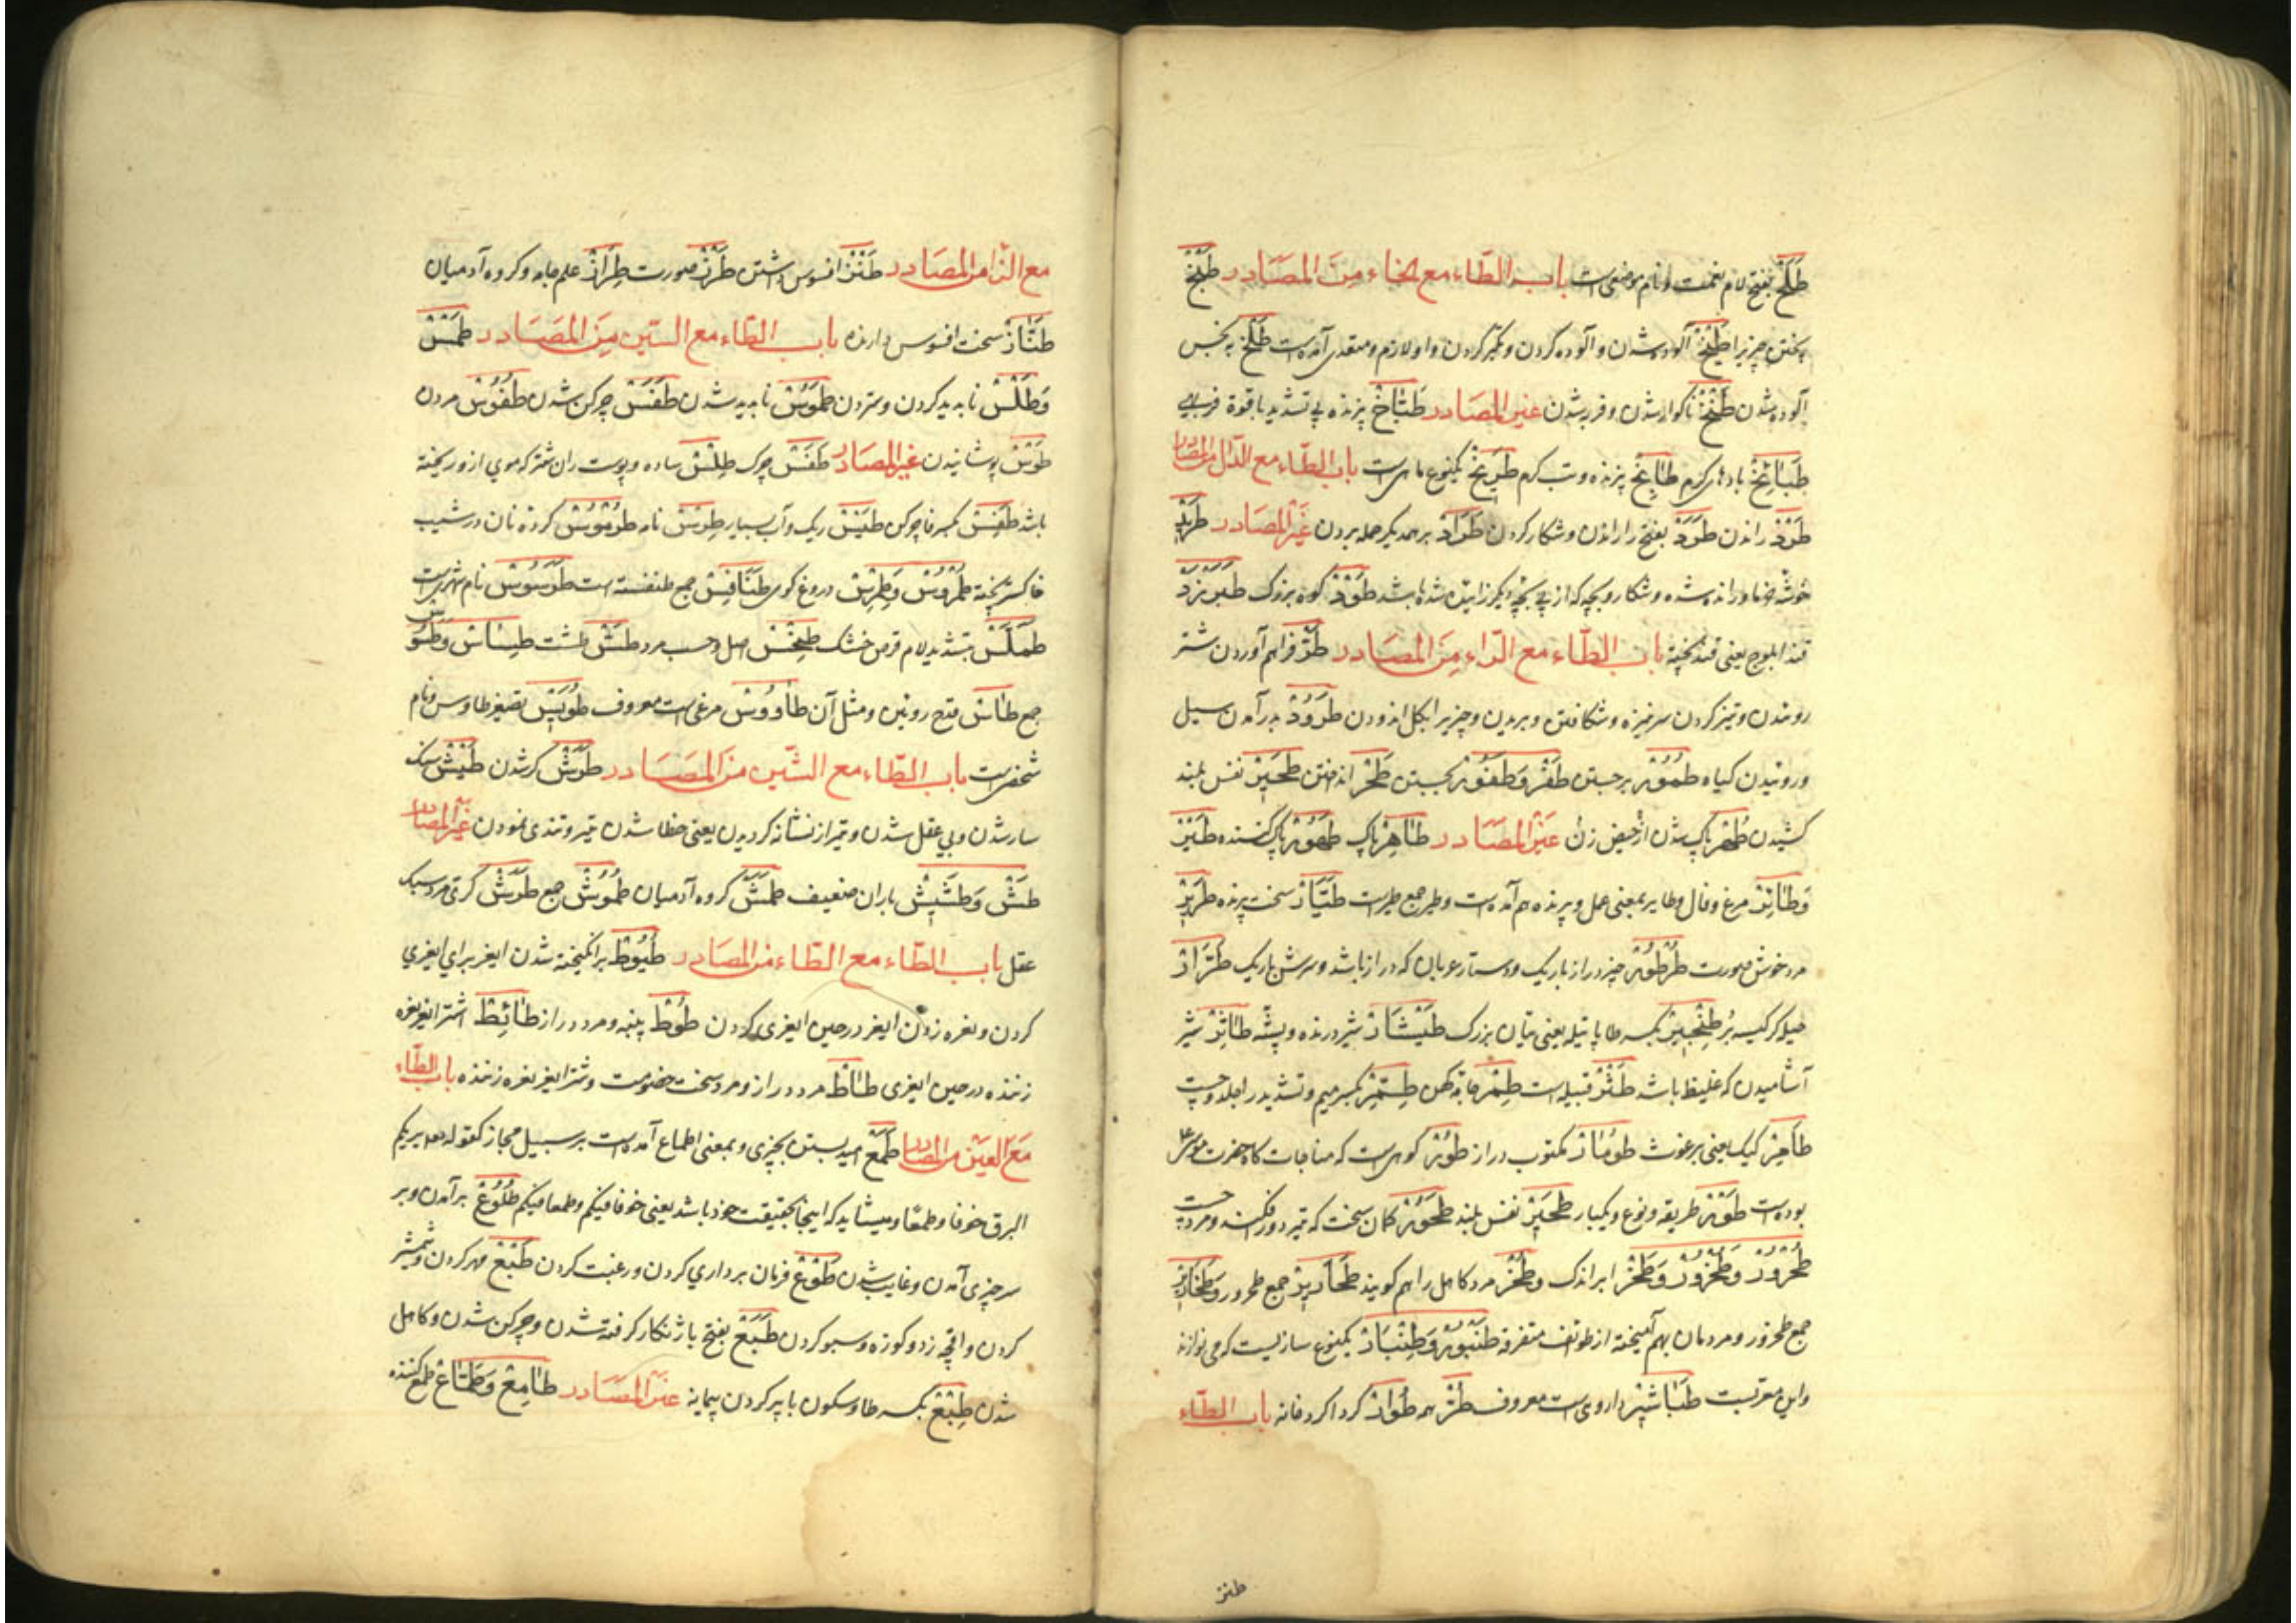 طَلَح بفتح لام نعمت و نام موضعی است باب الطّاء مع الخاء مِنَ المصَادر طَبْخ
پختن چیزیرا طَیْخ آلوده شدن و آلوده کردن و تکبّر کردن و او لازم و متعدی آمده است طَلْخ به نجس
آلوده شدن طَنَخ ناکوار شدن و فربه شدن غیر المصَادر طَبّاخ پزنده بی تشدید با قوة فربهی
طَبَائِخ بادهای کرم طَابِخ پزنده و تب کرم یکنوع ماهی است باب الطّاء مع الدّال من المصادر
طَرْد راندن طَرَد بفتح را راندن و شکار کردن طِرَاد بر همدیکر حمله بردن غَیر المصَادر طَرِید
خوشه خرما و رانده شده و شکار و بچه که از پی بچهٔ دیکر زاییده شده باشد طَوْد کوه بزرک طَبَرْزَد
قند ابلوج یعنی قند پخته باب الطّاء مع الرّاء مِنَ المصَادر طَرّ فراهم آوردن شتر
روییدن و تیز کردن سر نیزه و شکافتن و بریدن و چیزیرا بکل اندودن طُرُور بر آمدن سبیل
و روئیدن کیاه طُمُور بر جستن طَفْر وَطُفُور بجستن طَحْر انداختن طَحِیر نفس بلند
کشیدن طُهْر پاک شدن از حیض زن غیر المصَادر طَاهِر پاک طَهُور پاک کننده طَیْر
وَطَائِر مرغ و فال و طایر بمعنی عمل و پرنده هم آمده است و طیر جمع طیر است طَیّار سخت پرنده طَرِیر
مرد خوش صورت طُرْطُور چیز دراز باریک و دستار عربان که دراز باشد و سرش باریک طَرّار
حیله کر کیسه بُر طِنْجِیر بکسر طا پاتیله یعنی تیان بزرک طَیْثَار شیر درنده و پشّه طَاثِر شیر
آشامیدن که غلیظ باشد طَثْر قبیله است طِمْر جامهٔ کهن طِمِرّ بکسر میم و تشدید را جلد و چست
طَامِر کیک یعنی برغوث طُومَار مکتوب دراز طُور کوهی است که مناجات کاه حضرت موسی
بوده است طَوْر طریقه و نوع و یکبار طَحِیر نفس بلند طَحُور کمان سخت که تیر دور افکند و مرد چست
طُحْرُور وَطُخْرُور وَطَخْر ابر اندک وَطَخْر مرد کامل را هم کویند طَحَارِیر جمع طحرور وَطَخَارِیر
جمع طخرور و مردمان بهم آمیخته از طوائف متفرقه طُنْبُور وَطِنْبَار یکنوع سازیست که می نوازند
و این معرّبست طَبَاشِیر داروی است معروف طُرّ همه طَوَار کردا کرد خانه باب الطّاء
طنز
مع الزّا من المصَادر طَنْز افسوس داشتن طَرْز صورت طِرَاز علم جامه و کروه آدمیان
طَنّاز سخت افسوس دارنده باب الطّاء مع السّین مِنَ المصَادر طَمْس
وَطَلْس ناپدید کردن و ستردن طُمُوس ناپدید شدن طَفَس چرکن شدن طُفُوس مردن
طَوْس پوشانیدن غیر المصَادر طَفَس چرک طِلْس ساده و پوست ران شتر که موی از و ریخته
باشد طَفِس بکسر فا چرکن طَیْس ریک و آب بسیار طِرْس نامه طُرْمُوس کردهٔ نان در شیب
خاکستر پخته طُمْرُوس وَطِمْرِس دروغ کوی طَنَافِس جمع طنفسه است طَرَسُوس نام شهریست
طَمَلَّس بتشدید لام قرص خشک طِخْس اصل و حسب مرد طَسّ طشت طِسَاس وَطُسُوس
جمع طَاس قدح روئین و مثل آن طَاوُوس مرغی است معروف طُوَیْس تصغیر طاوس و نام
شخصی است باب الطّاء مع الشّین مِنَ المصَادر طَرَش کر شدن طَیْش سبک
سار شدن و بی عقل شدن و تیر از نشانه کردیدن یعنی خطا شدن تیر و تندی نمودن غیر المصادر
طَشّ وَطَشِیش باران ضعیف طَمْش کروه آدمیان طُمُوش جمع طَرَش کری مرد سبک
عقل باب الطّاء مع الطّاء من المصَادر طُیُوط برانکیخته شدن ایغر برای ایغری
کردن و نعره زدن ایغر در حین ایغری کردن طُوط پنبه و مرد دراز طَائِط اشتر ایغر نعره
زننده در حین ایغری طَاط مرد دراز و مرد سخت خصومت و شتر ایغر نعره زننده باب الطّاء
مَعَ العَین من المصادر طَمَع امید بستن بچیزی و بمعنی اطماع آمده است بر سبیل مجاز کقوله تع یریکم
البرق خوفا و طمعًا و میشاید که اینجا بحقیقت خود باشد یعنی خوفا فیکم و طمعا فیکم طُلُوع بر آمدن و بر
سر چیزی آمدن و غایب شدن طَوْع فرمان برداری کردن و رغبت کردن طَبْع مهر کردن و شمشیر
کردن و اقچه زدن و کوزه و سبو کردن طَبَع بفتح با ژنکار کرفته شدن و چرکن شدن و کاهل
شدن طِبْع بکسر طا و سکون با پر کردن پیمانه غیر المصَادر طَامِع وَطَمّاع طمع کننده